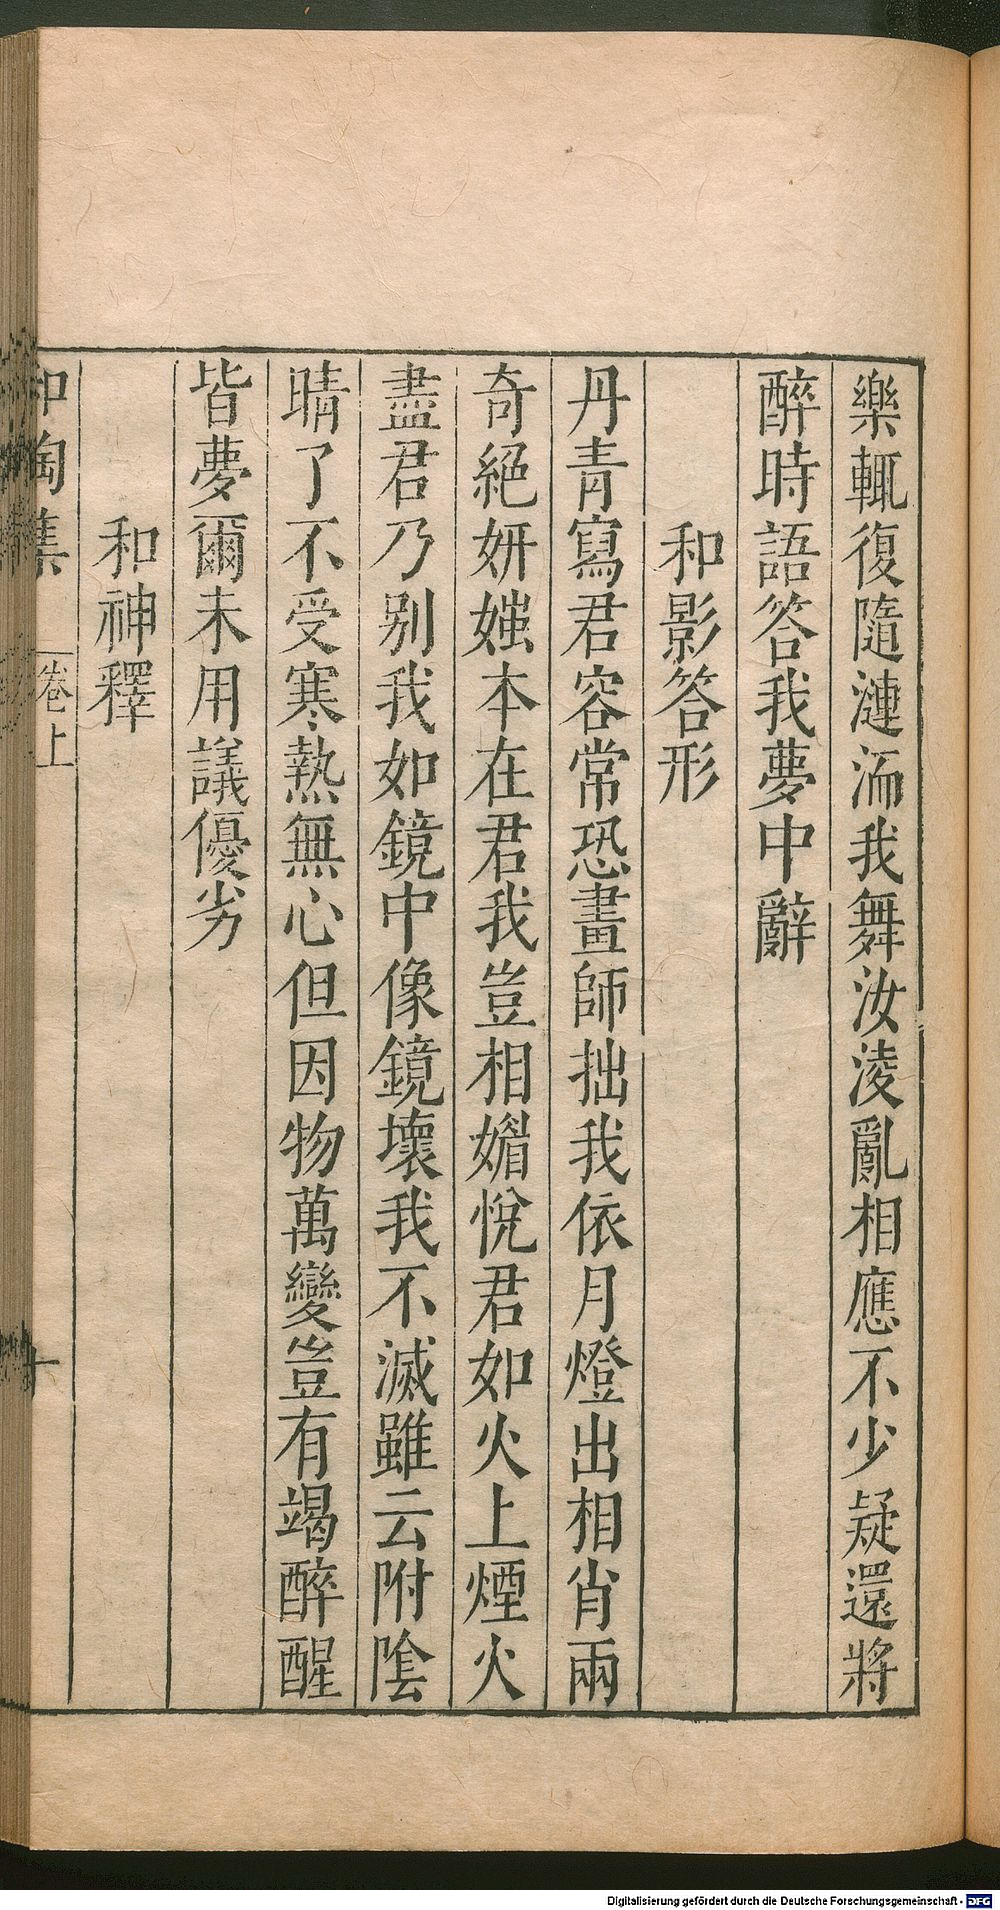 樂輒復隨漣洏我舞汝淩亂相應不少疑還將
醉時語答我夢中辭
和影答形
丹青寫君容常恐畫師拙我依月燈出相肖兩
奇絕妍媸本在君我豈相媚悅君如火上煙火
盡君乃別我如鏡中像鏡壞我不滅雖云附陰
晴了不受寒熱無心但因物萬變豈有竭醉醒
皆夢爾未用議優劣
和神釋
和陶集
卷上
十
Digitalisierung gefördert durch die Deutsche Forschungsgemeinschaft - DFG